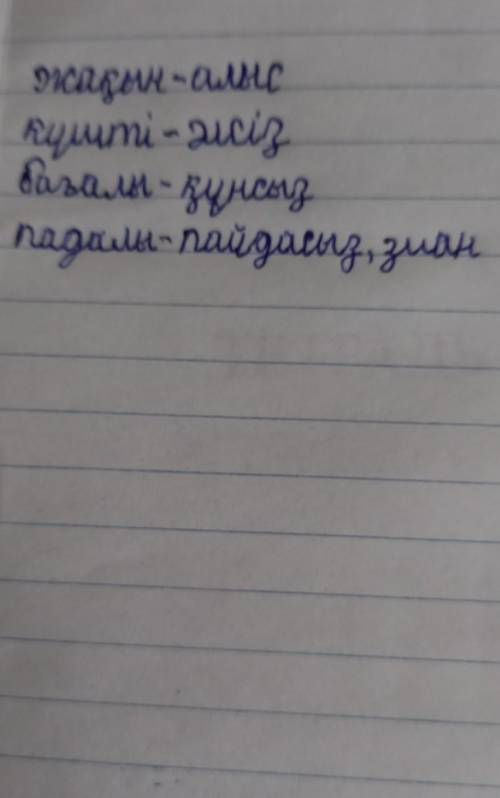 жақын-алыс
күшті-әлсіз
бағалы-құнсыз
падалы-пайдасыз, зиан